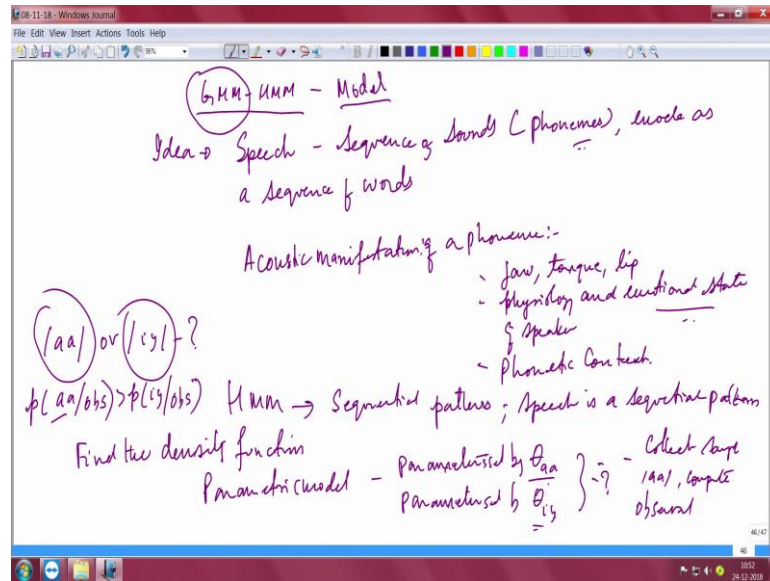 08-11-18 - Windows Journal
File Edit View Insert Actions Tools Help
96%
GMM-HMM - Model
Idea → Speech - sequence of sounds (phonemes), encode as
a sequence of words
Acoustic manifestation of a phoneme:-
- Jaw, tongue, lip
- physiology and emotional state
of speaker
- Phonetic Context.
/aa/ or /iy/ - ?
p(aa/obs) > p(iy/obs) HMM → Sequential patterns; Speech is a sequential pattern
Find the density function
Parametric model - Parameterised by θaa
Parameterised by θiy
} - ?
- Collect
/aa/, compute
46/47
46
10:52
24-12-2018